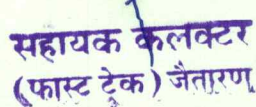 सहायक कलक्टर
(फास्ट टेक) जैतारण